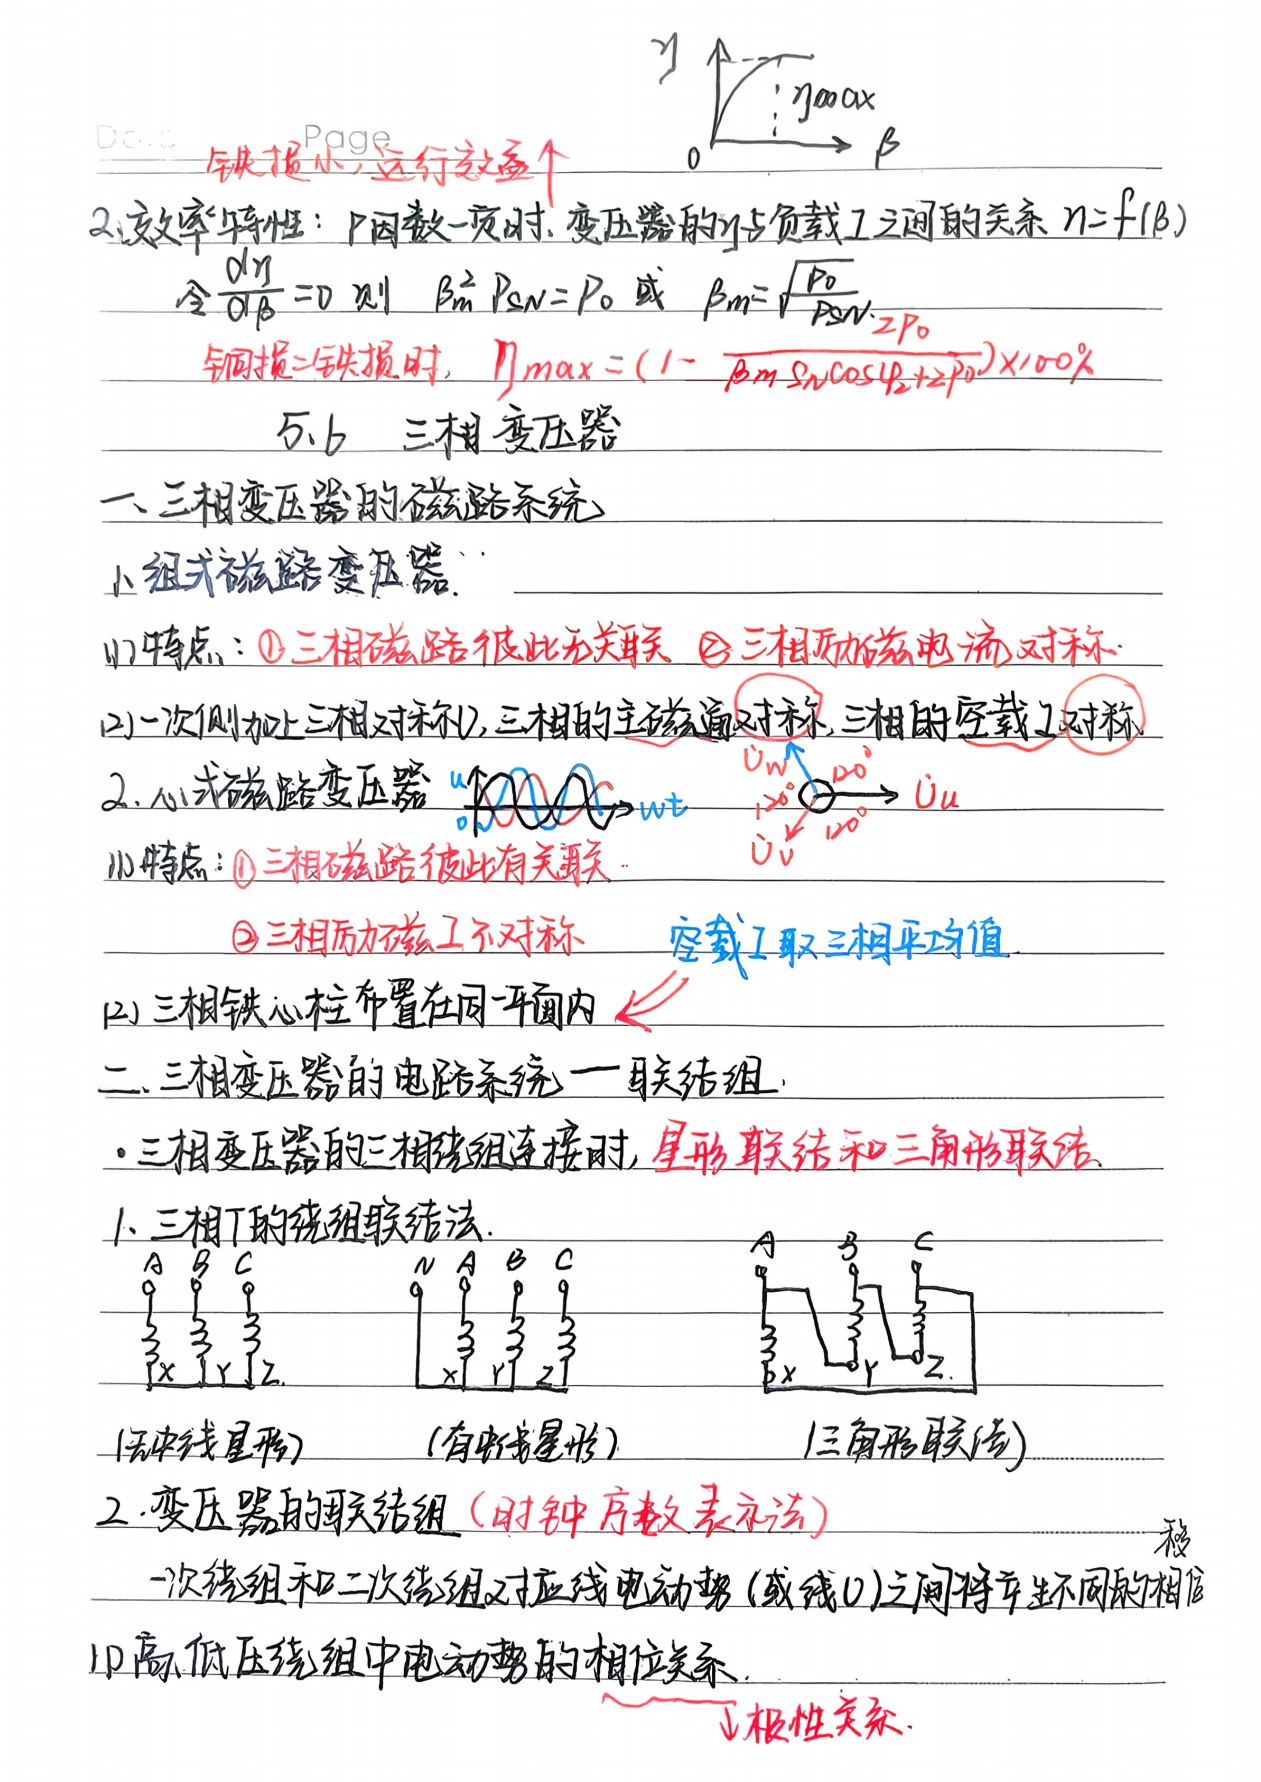 η
ηmax
0 β
Page
铁损小,运行效益↑
2.效率特性: P因数一定时,变压器的η与负载I之间的关系 η=f(β)
令dη/dβ=0 则 βm²PSN=P0 或 βm=√(P0/PSN).
铜损=铁损时, ηmax=(1-2P0/(βmSNcosφ2+2P0))×100%
5.6 三相变压器
一、三相变压器的磁路系统
1、组式磁路变压器.
(1)特点:①三相磁路彼此无关联 ②三相励磁电流对称.
(2)一次侧加上三相对称U,三相的主磁通对称,三相的空载I对称.
2.心式磁路变压器 u 0 wt U̇w 120° 120° 120° U̇u U̇v
(1)特点:①三相磁路彼此有关联.
②三相励磁I不对称 空载I取三相平均值
(2)三相铁心柱布置在同一平面内
二、三相变压器的电路系统一联结组.
·三相变压器的三相绕组连接时,星形联结和三角形联结.
1、三相T的绕组联结法.
A B C N A B C A B C
X Y Z. X Y Z X Y Z.
(无中线星形) (有中线星形) (三角形联结)
2.变压器的联结组(时钟序数表示法)
移
一次绕组和二次绕组对应线电动势(或线U)之间将产生不同的相位
(1)高、低压绕组中电动势的相位关系.
↓极性关系.